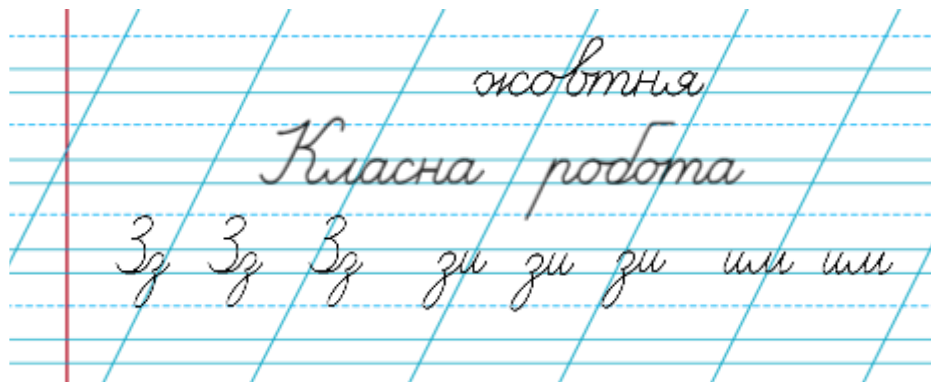 жовтня
Класна робота
Зз Зз Зз зи зи зи им им